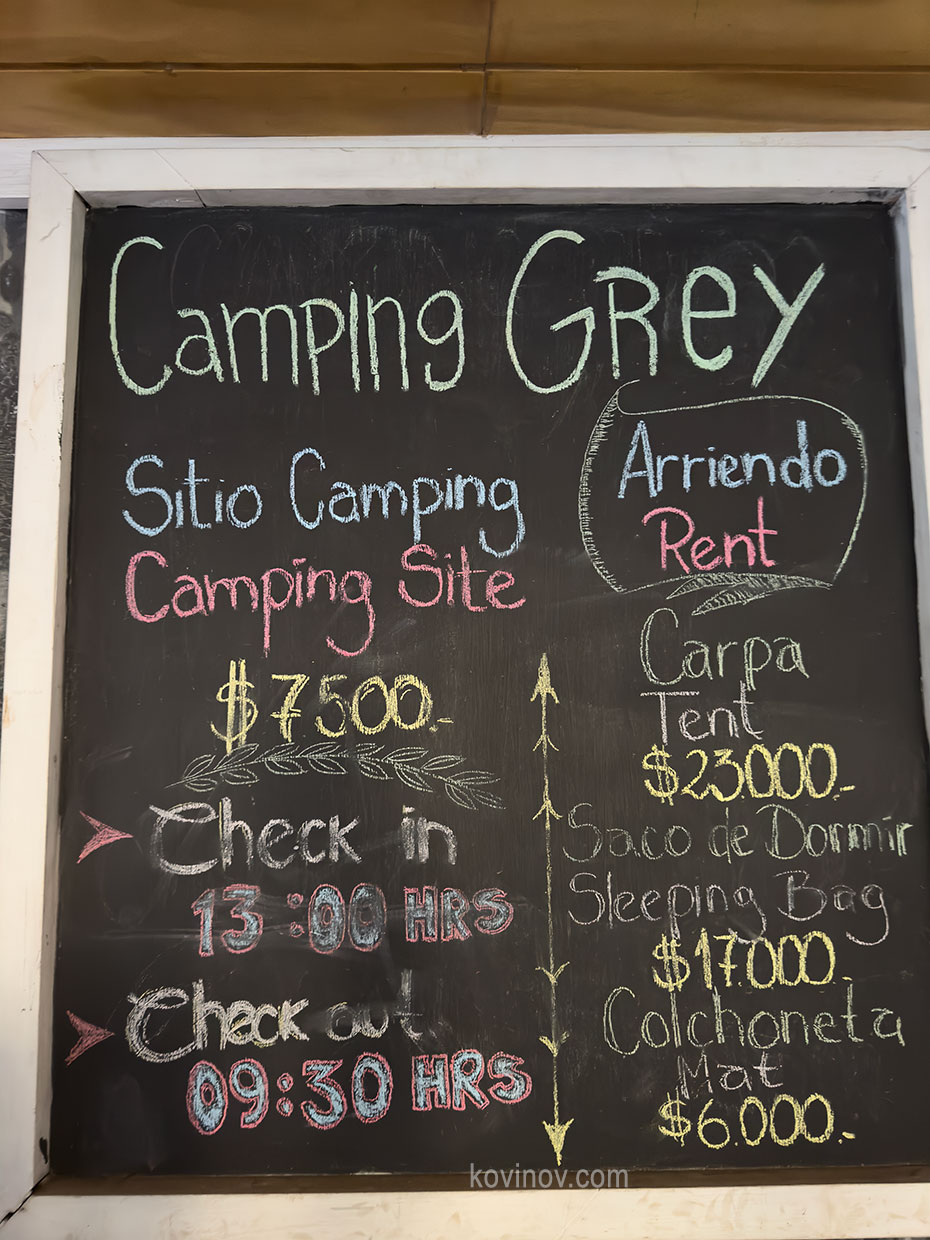 Camping Grey
Sitio Camping
Camping Site
$7.500.-
Check in
13:00 HRS
Check out
09:30 HRS
Arriendo
Rent
Carpa
Tent
$23.000.-
Saco de Dormir
Sleeping Bag
$17.000.-
Colchoneta
Mat
$6.000.-
kovinov.com